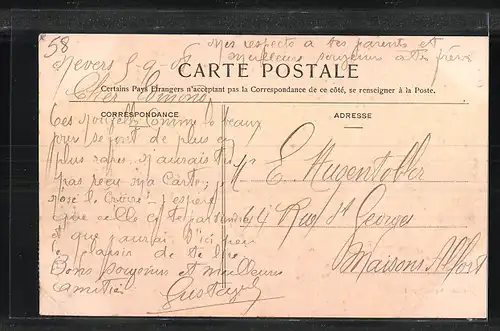 58
Mes respects a tes parents et
Nevers 5-9-06 Meilleurs souvenirs a tes frères
CARTE POSTALE
Certains Pays Etrangers n'acceptant pas la Correspondance de ce côté, se renseigner à la Poste.
Cher
CORRESPONDANCE
ADRESSE
Tes nouvelles comme le beau
se font de plus en
plus rares. N'aurais tu
pas reçu ma carte,
j'espère
que celle ci te parviendra
et que j'aurai d'ici peu
le plaisir de te lire
Bons souvenirs et meilleure
amitiés
Gustave
Mr E. Hugentobler
44 Rue St Georges
Maisons Alfort